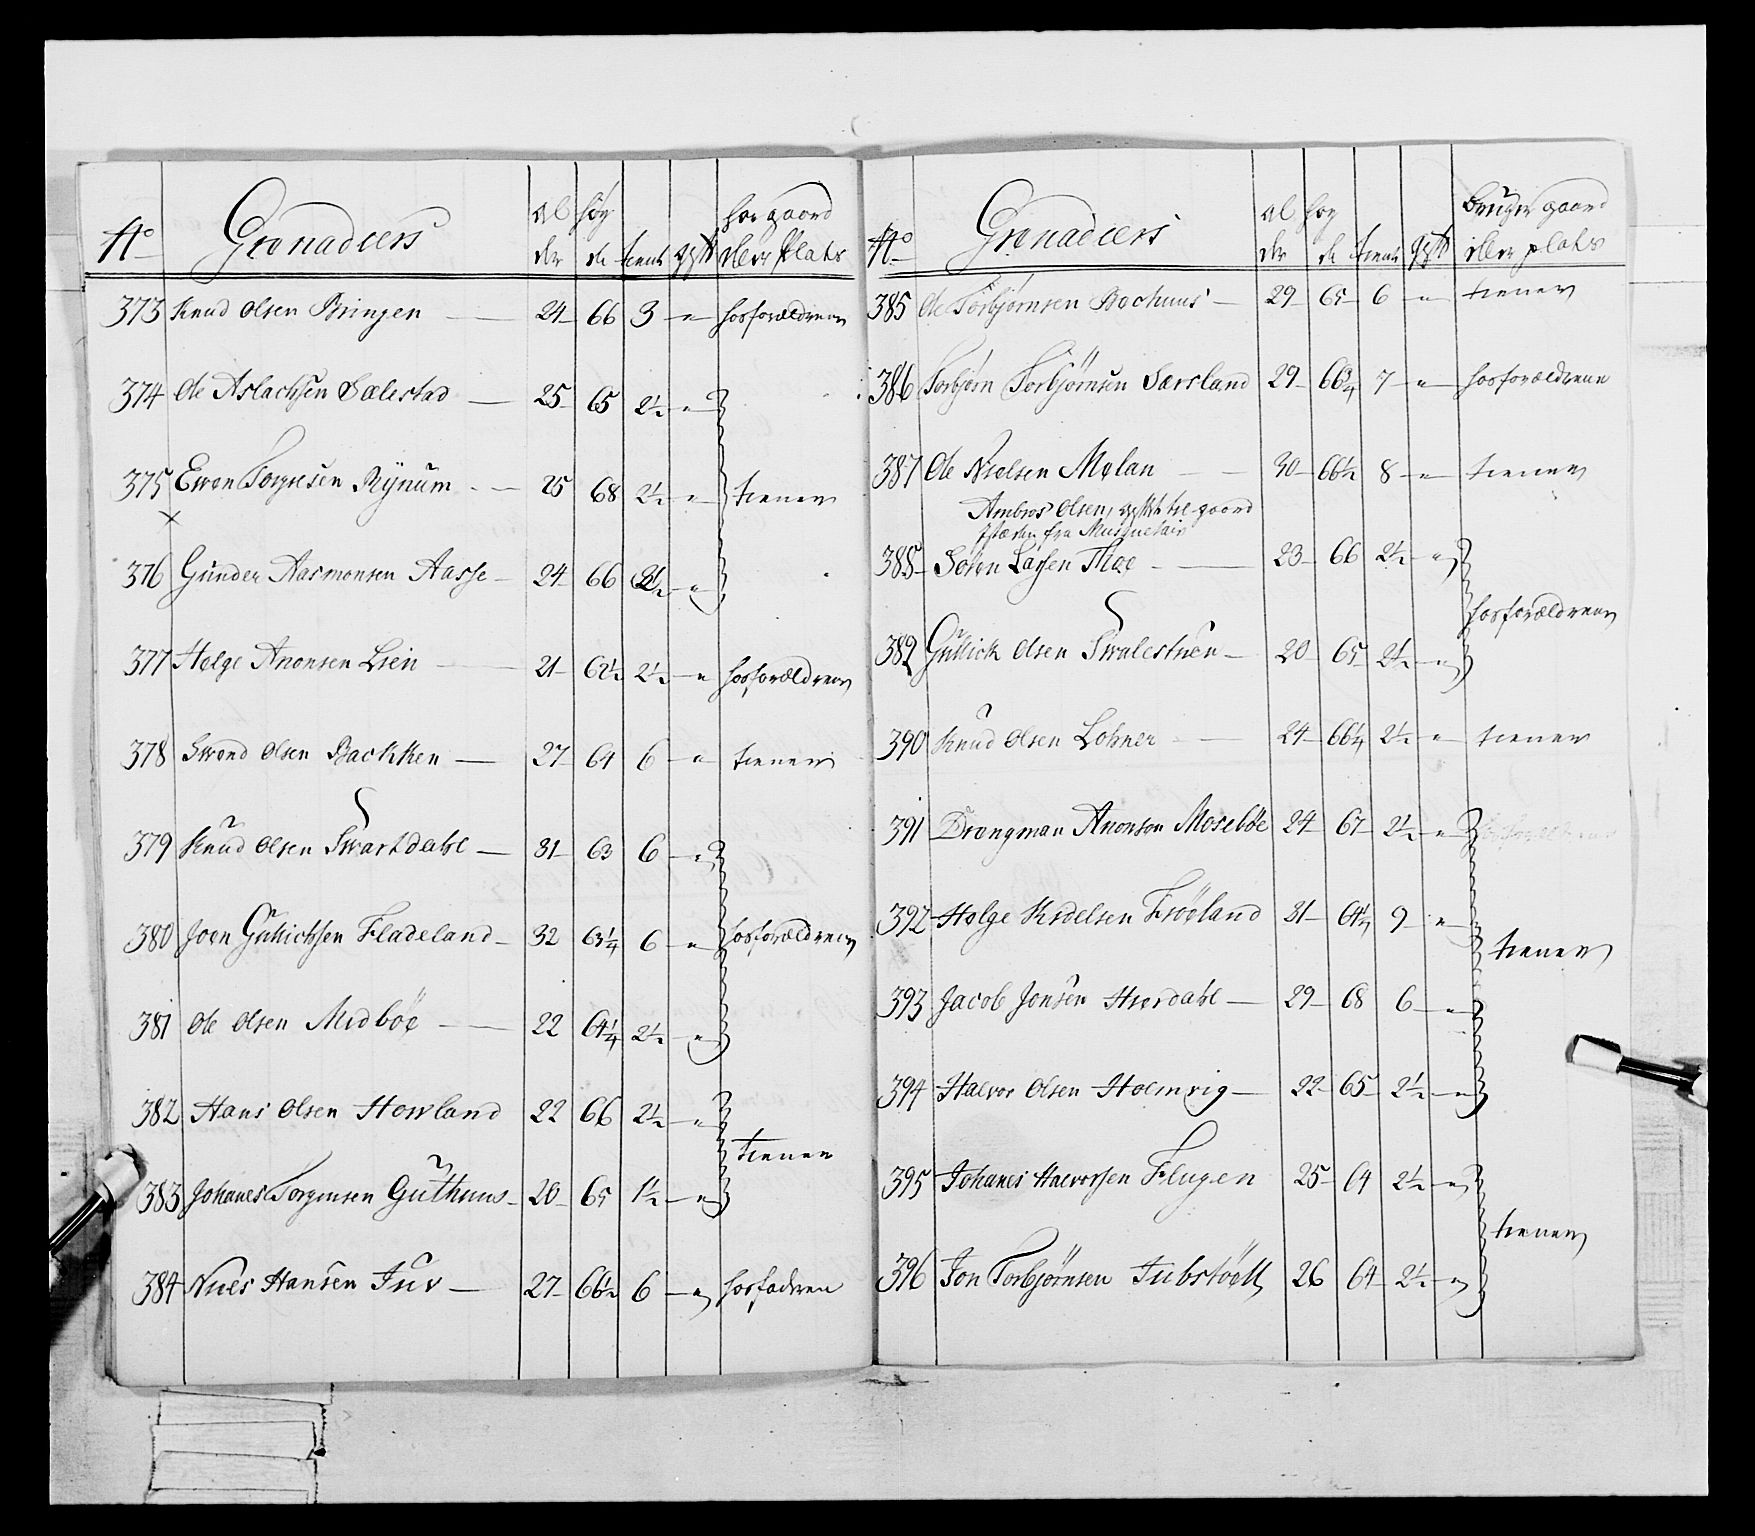 No Grenadiers al der høy de tient gift har gaard eller Plats
373 Knud Olsen Bringen — 24 66 3 - hosforældrene
374 Ole Aslachsen Sælestad — 25 65 2½ -
375 Even Torgiesen Rynum — 25 68 2½ - tiener
376 Gunder Aasmonsen Aasse — 24 66 2½ -
377 Helge Anonsen Lien — 21 62½ 2½ - hosforældrene
378 Svend Olsen Backken — 27 64 6 - tiener
379 Knud Olsen Svartdahl — 31 63 6 -
380 Joen Gullichsen Fladeland — 32 63¼ 6 - hosforældrene
381 Ole Olsen Midbøe — 22 64¼ 2½ -
382 Hans Olsen Hovland 22 66 2½ -
tiener
383 Johanes Torgensen Guthuus — 20 65 1½ -
384 Niels Hansen Juv — 27 66½ 6 - hosfadren
No Grenadiers al der høy de tient gift bruger gaard eller plats
385 Ole Torbjørnsen Bochuus — 29 65 6 - tiener
386 Torbjørn Torbjørnsen Særsland 29 66¾ 7 - hosforældrene
387 Ole Nielsen Molan — 30 66½ 8 - tiener
Ambros Olsen, gift til gaard
fra Musquetair
388 Søren Larsen Thoe — 23 66 2½ -
hosforældrene
389 Gullick Olsen Svalestuen — 20 65 2½ -
390 Knud Olsen Lohner — 24 66¼ 2½ - tiener
391 Drengman Anonson Mosebøe 24 67 2½ -
392 Helge Kedelsen Frøeland 21 64¼ 9 -
tiener
393 Jacob Jonsen Hierdahl — 29 68 6 -
394 Halvor Olsen Holmvig — 22 65 2½ -
395 Johanes Halvorsen Flugen 25 64 2½ -
tiener
396 Jon Torbjørnsen 26 64 2½ -